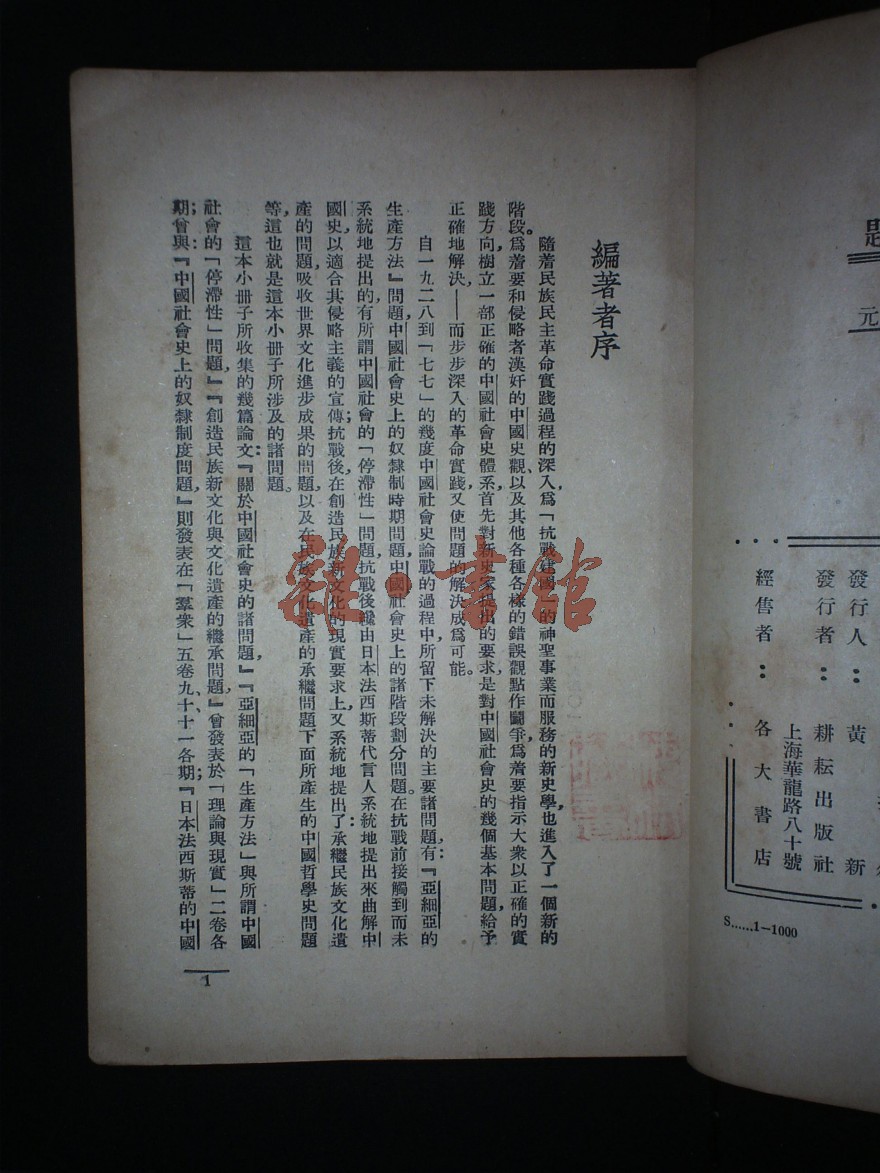 題
元
發行人：黃　新
發行者：耕耘出版社
上海華龍路八十號
經售者：各大書店
S......1—1000
編著者序
隨着民族民主革命實踐過程的深入，爲「抗戰建國」的神聖事業而服務的新史學，也進入了一個新的
階段。爲着要和侵略者漢奸的中國史觀、以及其他各種各樣的錯誤觀點作鬭爭，爲着要指示大衆以正確的實
踐方向，樹立一部正確的中國社會史體系，首先對新史家提出的要求，是對中國社會史的幾個基本問題，給予
正確地解決——而步步深入的革命實踐，又使問題的解決成爲可能。
自一九二八到「七七」的幾度中國社會史論戰的過程中，所留下未解決的主要諸問題，有『亞細亞的
生產方法』問題，中國社會史上的奴隸制時期問題，中國社會史上的諸階段劃分問題。在抗戰前接觸到而未
系統地提出的，有所謂中國社會的「停滯性」問題，抗戰後纔由日本法西斯蒂代言人系統地提出來曲解中
國史，以適合其侵略主義的宣傳；抗戰後，在創造民族新文化的現實要求上，又系統地提出了：承繼民族文化遺
產的問題，吸收世界文化進步成果的問題，以及在民族文化遺產的承繼問題下面所產生的中國哲學史問題
等，這也就是這本小冊子所涉及的諸問題。
這本小冊子所收集的幾篇論文：『關於中國社會史的諸問題』，『亞細亞的「生產方法」與所謂中國
社會的「停滯性」問題』，『創造民族新文化與文化遺產的繼承問題』，曾發表於「理論與現實」二卷各
期；曾與『中國社會史上的奴隸制度問題』，則發表在「羣衆」五卷九、十、十一各期；『日本法西斯蒂的中國
1
雜·書館